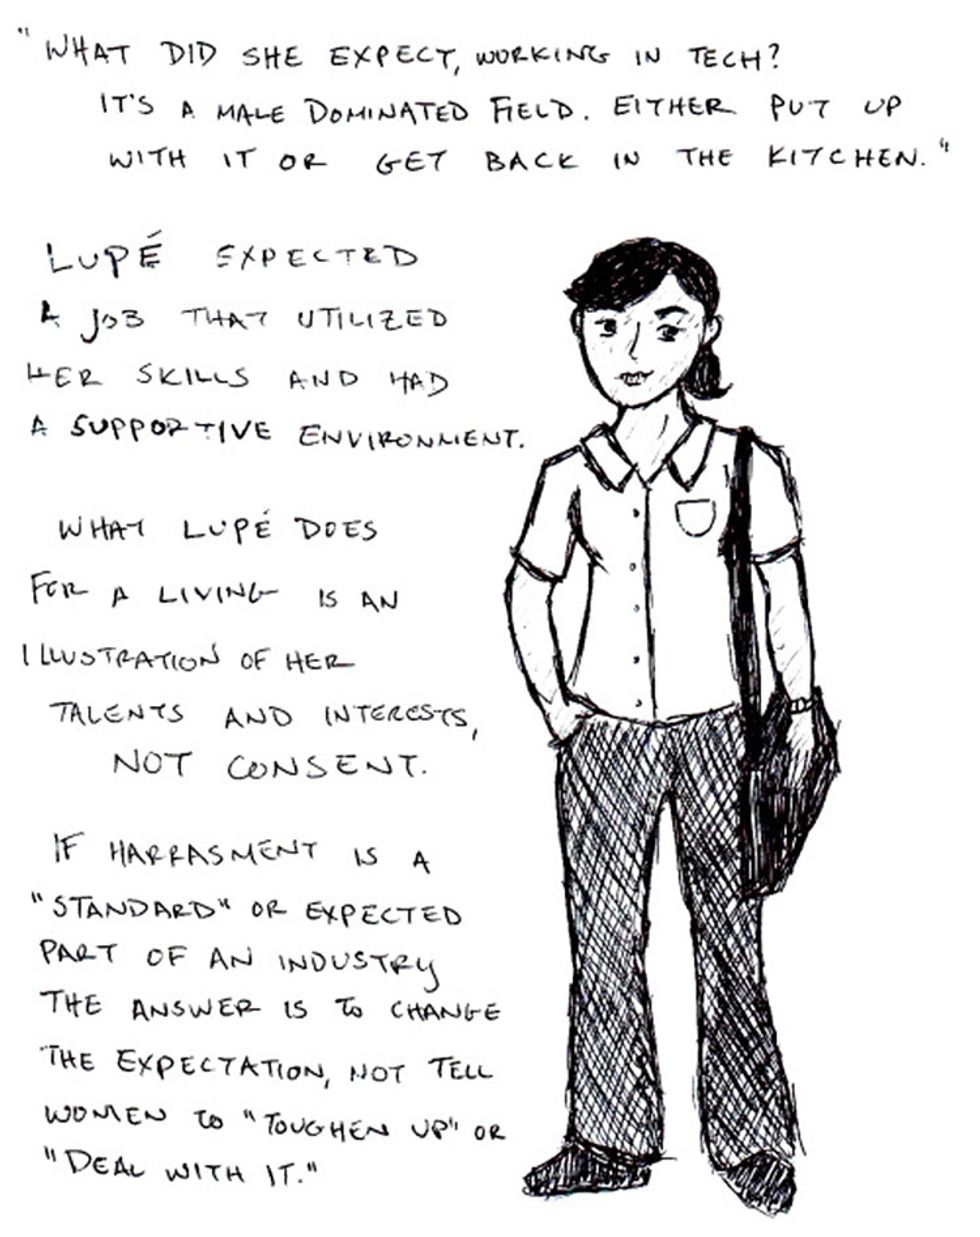 "WHAT DID SHE EXPECT, WORKING IN TECH?
IT'S A MALE DOMINATED FIELD. EITHER PUT UP
WITH IT OR GET BACK IN THE KITCHEN."
LUPÉ EXPECTED
A JOB THAT UTILIZED
HER SKILLS AND HAD
A SUPPORTIVE ENVIRONMENT.
WHAT LUPÉ DOES
FOR A LIVING IS AN
ILLUSTRATION OF HER
TALENTS AND INTERESTS,
NOT CONSENT.
IF HARRASMENT IS A
"STANDARD" OR EXPECTED
PART OF AN INDUSTRY
THE ANSWER IS TO CHANGE
THE EXPECTATION, NOT TELL
WOMEN TO "TOUGHEN UP" OR
"DEAL WITH IT."